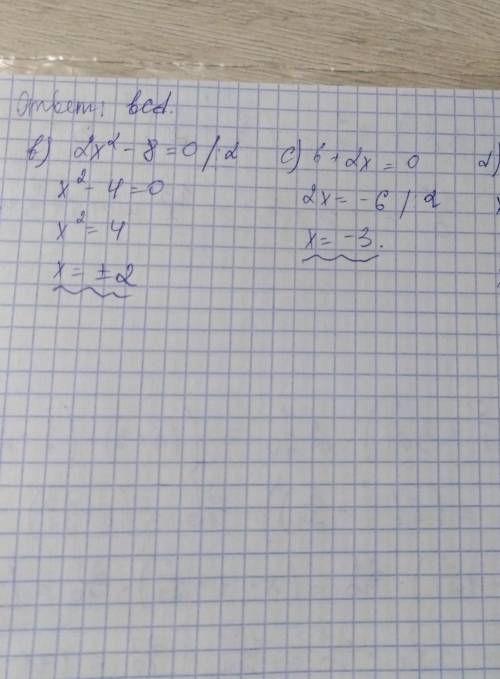 Ответ: bcd.
b) 2x² - 8 = 0 /:2
x² - 4 = 0
x² = 4
x = ± 2
c) 6 + 2x = 0
2x = -6 / 2
x = -3.
d)